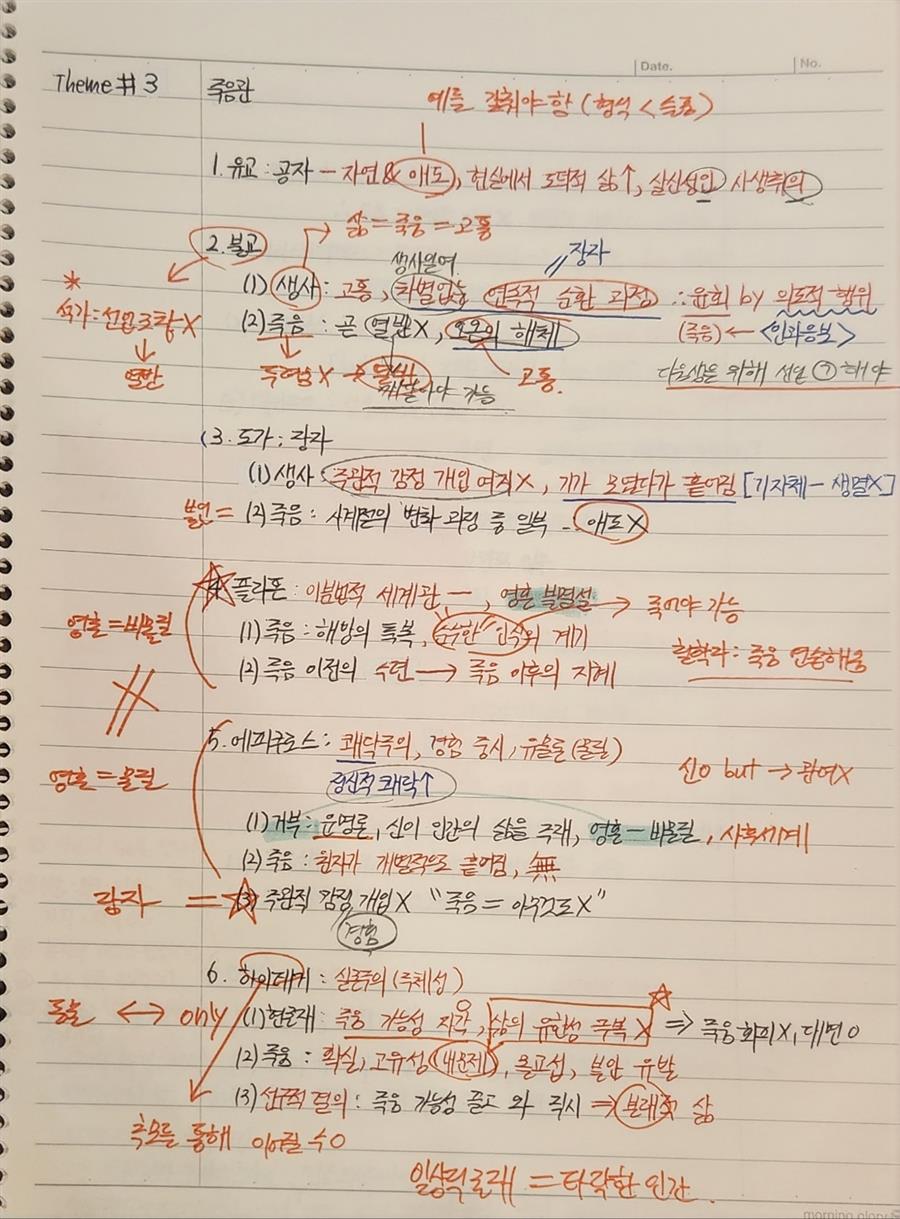 Date.
No.
Theme #3
죽음관
예를 갖춰야 함 (형식 < 슬픔)
1. 유교 : 공자 - 자연 & 애도, 현실에서 도덕적 삶↑, 살신성인 사생취의
삶 = 죽음 = 고통
2. 불교
생사일여
장자
(1) 생사 : 고통, 차별없는 연속적 순환 과정 ∴ 윤회 by 의도적 행위
*
석가 : 선업 조장 X
(2) 죽음 : 곧 열반 X, 오온의 해체
(죽음) ← <인과응보>
↓
열반
두려움 X →
깨달아야 가능
고통.
다음삶을 위해 선업 해야
3. 도가 : 장자
(1) 생사 : 주관적 감정 개입 여지 X, 기가 모였다가 흩어짐 [기자체 - 생멸X]
(2) 죽음 : 사계절의 변화 과정 중 일부 → 애도 X
4. 플라톤 : 이분법적 세계관 -, 영혼 불멸설 → 죽어야 가능
영혼 = 비물질
(1) 죽음 : 해방의 축복, 순수한 인식의 계기
철학자 : 죽음 연습해야
(2) 죽음 이전의 수련 → 죽음 이후의 지혜
5. 에피쿠로스 : 쾌락주의, 경험 중시, 유물론 (물질)
신 O but → 관여X
영혼 = 물질
정신적 쾌락↑
(1) 거부 : 운명론, 신이 인간의 삶을 주재, 영혼 - 비물질, 사후세계
(2) 죽음 : 원자가 개별적으로 흩어짐, 無
장자 =
(3) 주관적 감정 개입 X "죽음 = 아무것도 X"
경험
6. 하이데거 : 실존주의 (주체성)
동물 ↔ only
(1) 현존재 : 죽음 가능성 자각 O, 삶의 유한성 극복 X ⇒ 죽음 회피 X, 대면 O
(2) 죽음 : 확실, 고유성 몰교섭, 불안 유발
(3) 선구적 결의 : 죽음 가능성 직시 ⇒ 본래적 삶
통해 수 O
= 타락한 인간.
morning glory